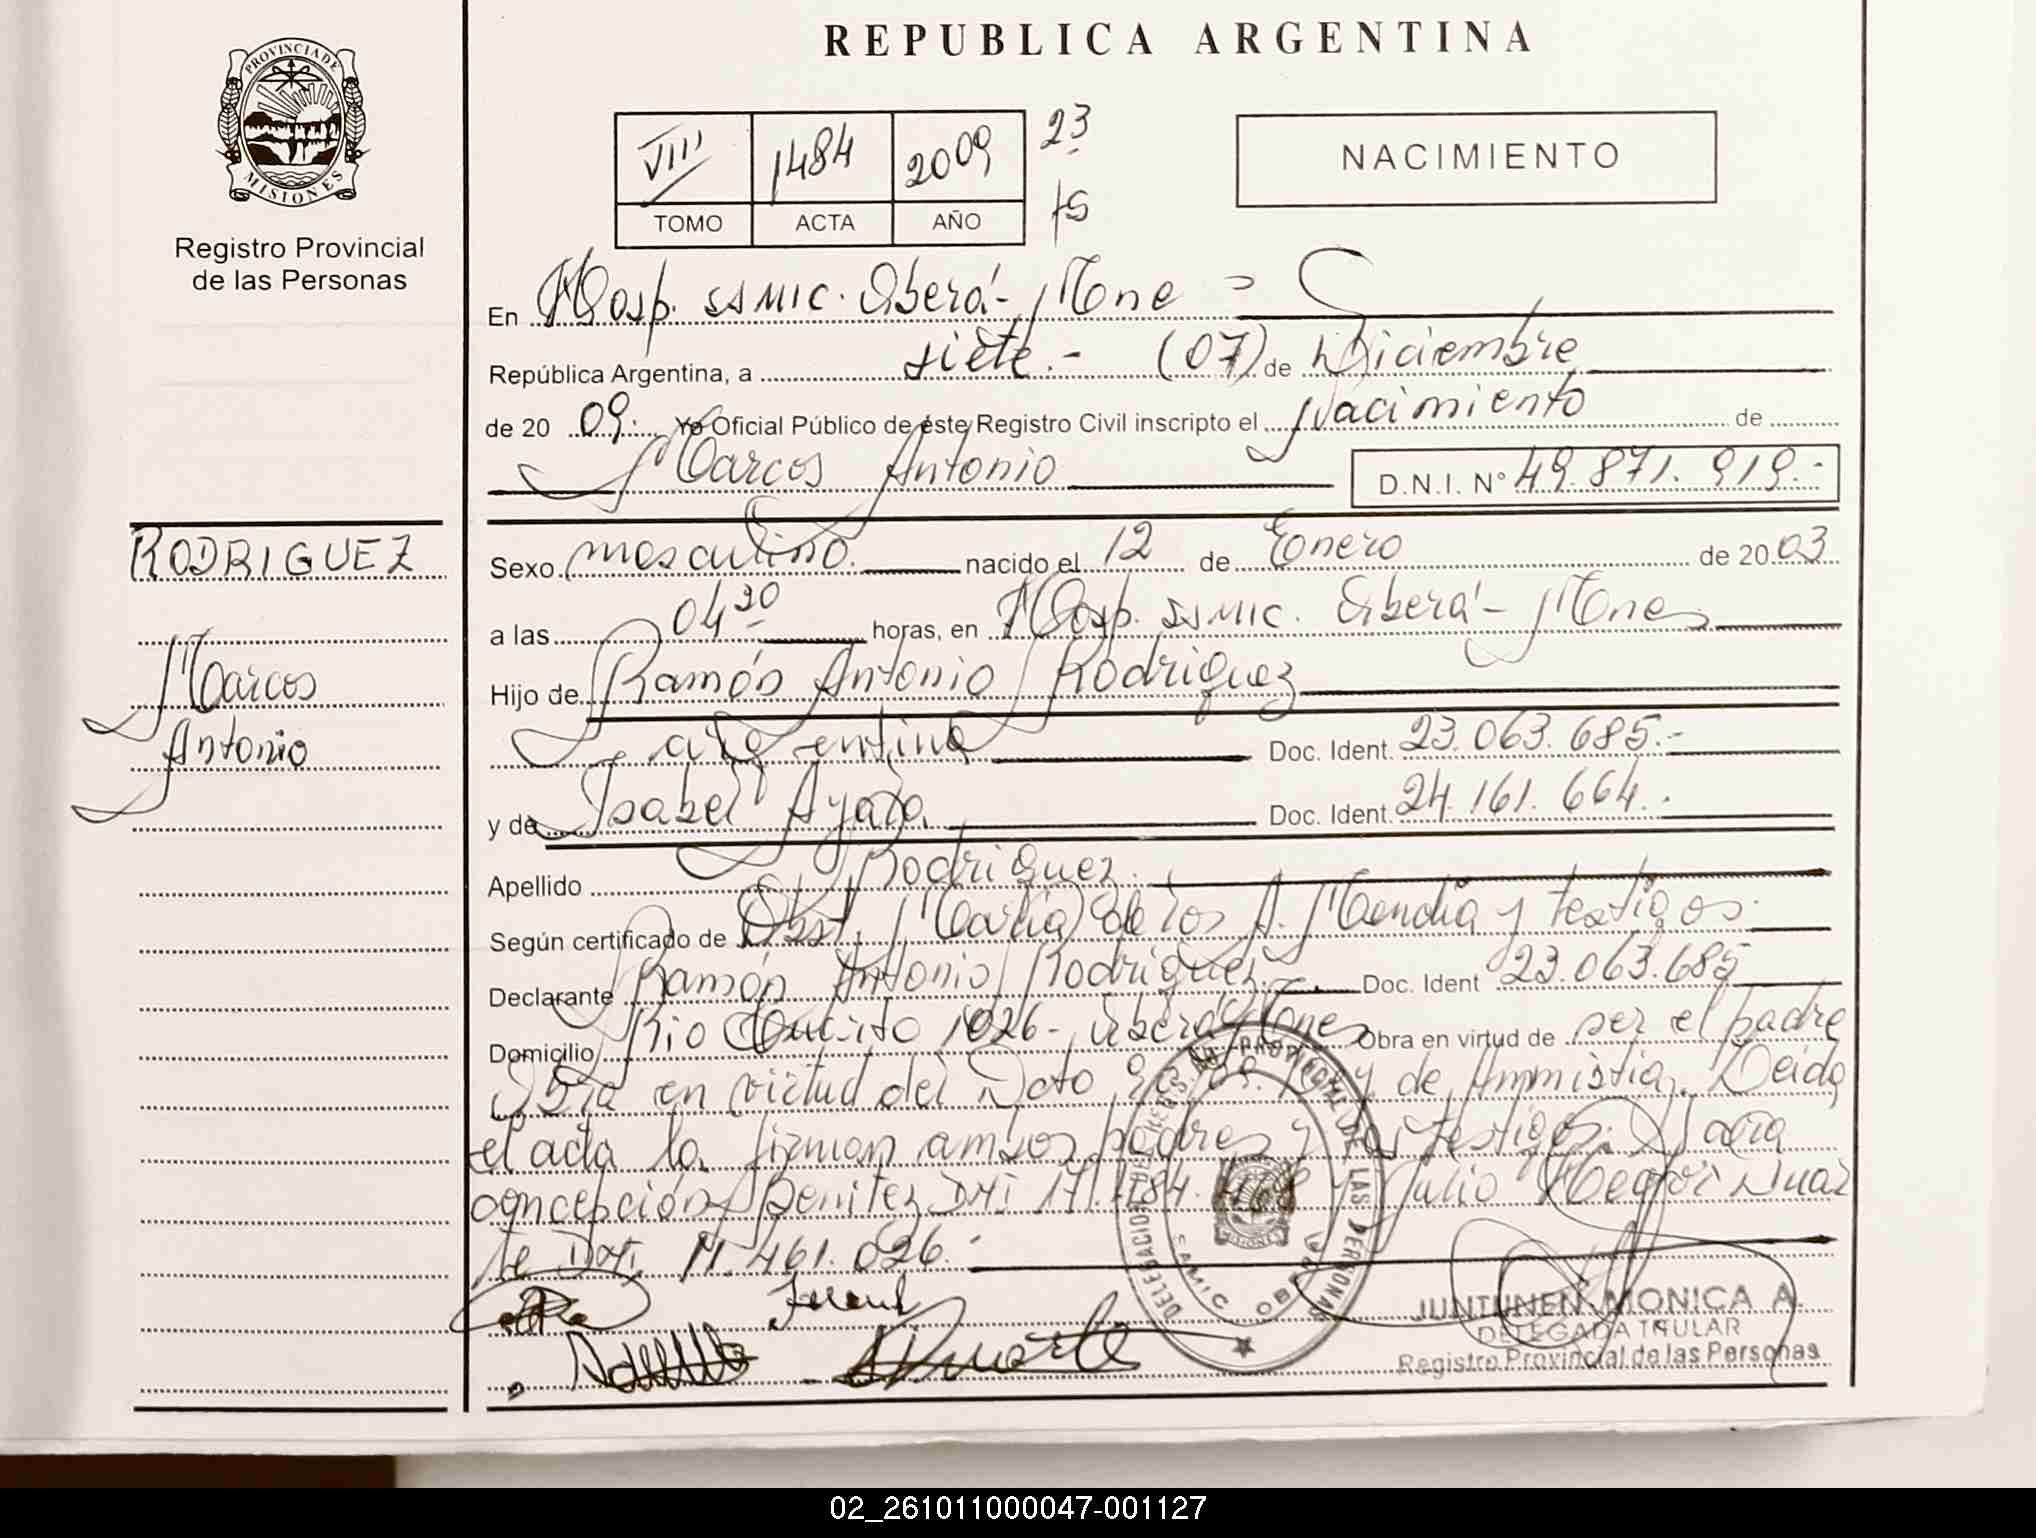 REPUBLICA ARGENTINA
PROVINCIA DE MISIONES
Registro Provincial
de las Personas
VIII 1484 2009 23
TOMO ACTA AÑO 15
NACIMIENTO
En Hosp. SAMIC. Oberá - Mnes
República Argentina, a siete.- (07) de Diciembre
de 20 09. Yo Oficial Público de éste Registro Civil inscripto el Nacimiento de
Marcos Antonio D.N.I. N° 49.871.919.-
RODRIGUEZ
Marcos
Antonio
Sexo masculino. nacido el 12 de Enero de 20 03
a las 04 30 horas, en Hosp. SAMIC. Oberá - Mnes
Hijo de Ramón Antonio Rodriguez
argentina Doc. Ident. 23.063.685.-
y de Isabel Ayala Doc. Ident. 24.161.664.-
Apellido Rodriguez.
Según certificado de Obst. María de los A. Mendia y testigos.
Declarante Ramón Antonio Rodriguez Doc. Ident 23.063.685
Domicilio Rio 1026 - Oberá Mnes Obra en virtud de ser el padre
Obra en virtud del Dcto 90/09. Ley de Ammistia. Leida
el acta la firman ambos padres y los testigos: María
concepción Benitez DNI 17. y Julio Hector Duar
te DNI. 11.461.026.-
DELEGACION DE REGISTRO PROVINCIAL DE LAS PERSONAS
SAMIC OBERA
JUNTUNEN MONICA A.
DELEGADA TITULAR
Registro Provincial de las Personas
02_261011000047-001127